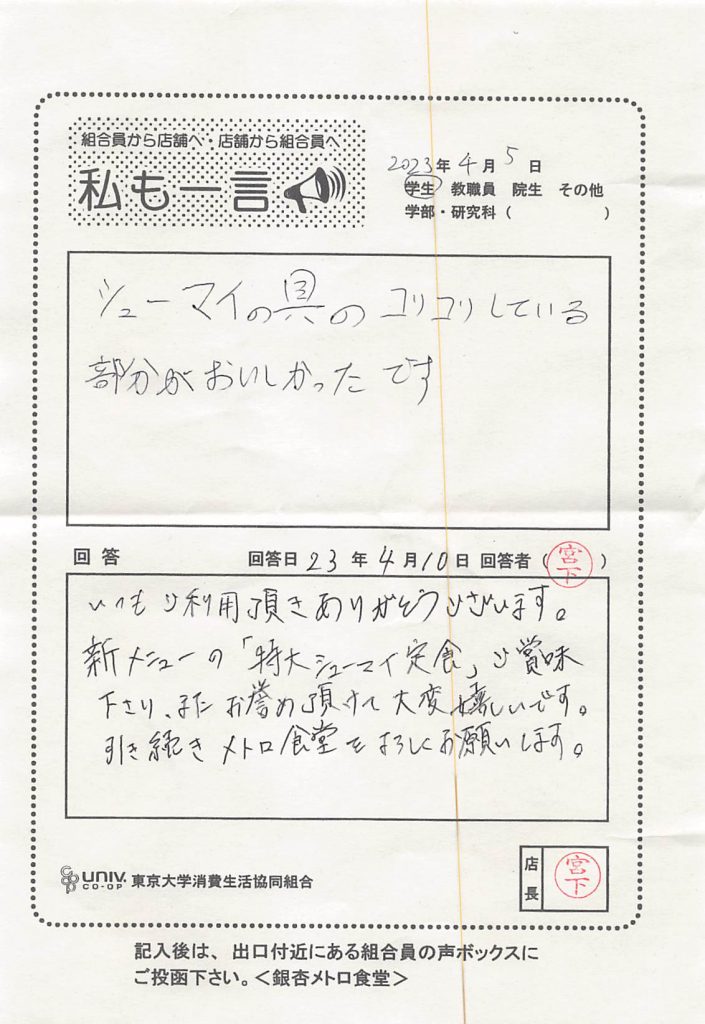 組合員から店舗へ・店舗から組合員へ
私も一言
2023年4月5日
学生 教職員 院生 その他
学部・研究科( )
シューマイの具のコリコリしている
部分がおいしかったです
回答 回答日 23年4月10日 回答者(宮下)
いつもご利用頂きありがとうございます。
新メニューの「特大シューマイ定食」ご賞味
下さり、またお誉め頂けて大変嬉しいです。
引き続きメトロ食堂をよろしくお願いします。
UNIV. CO-OP 東京大学消費生活協同組合
店長 宮下
記入後は、出口付近にある組合員の声ボックスに
ご投函下さい。<銀杏メトロ食堂>